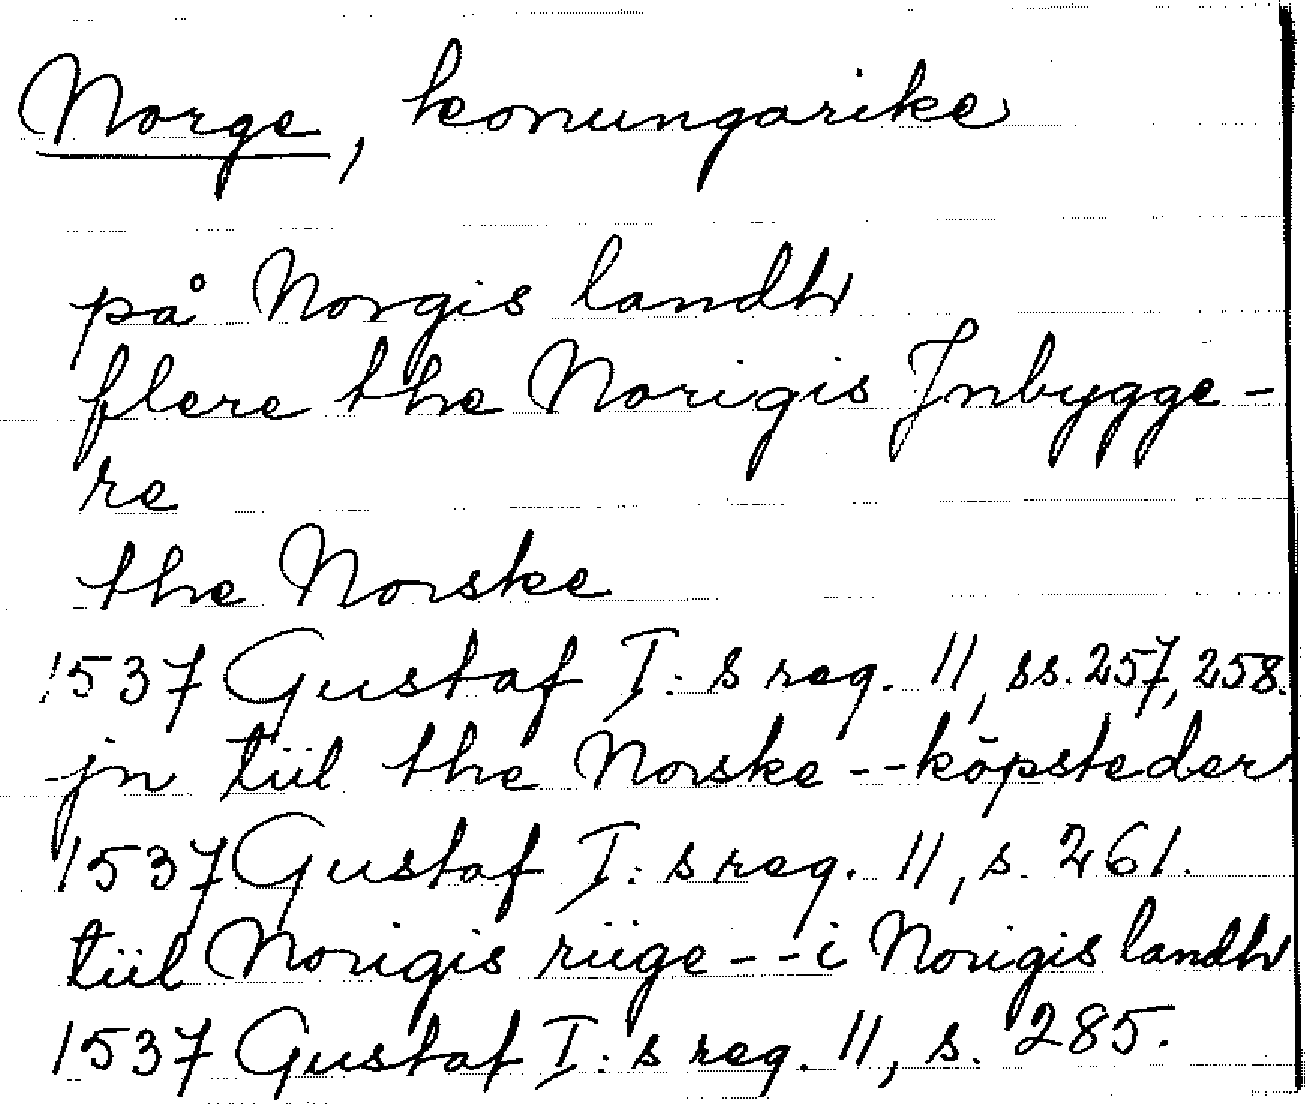 Norge, konungarike
på Norgis landh
flere the Norigis Jnbygge-
re
the Norske
1537 Gustaf I:s reg. 11, ss. 257, 258.
jn tiil the Norske -- köpsteder
1537 Gustaf I:s reg. 11, s. 261.
tiil Norigis riige -- i Norigis landh
1537 Gustaf I:s reg. 11, s. 285.